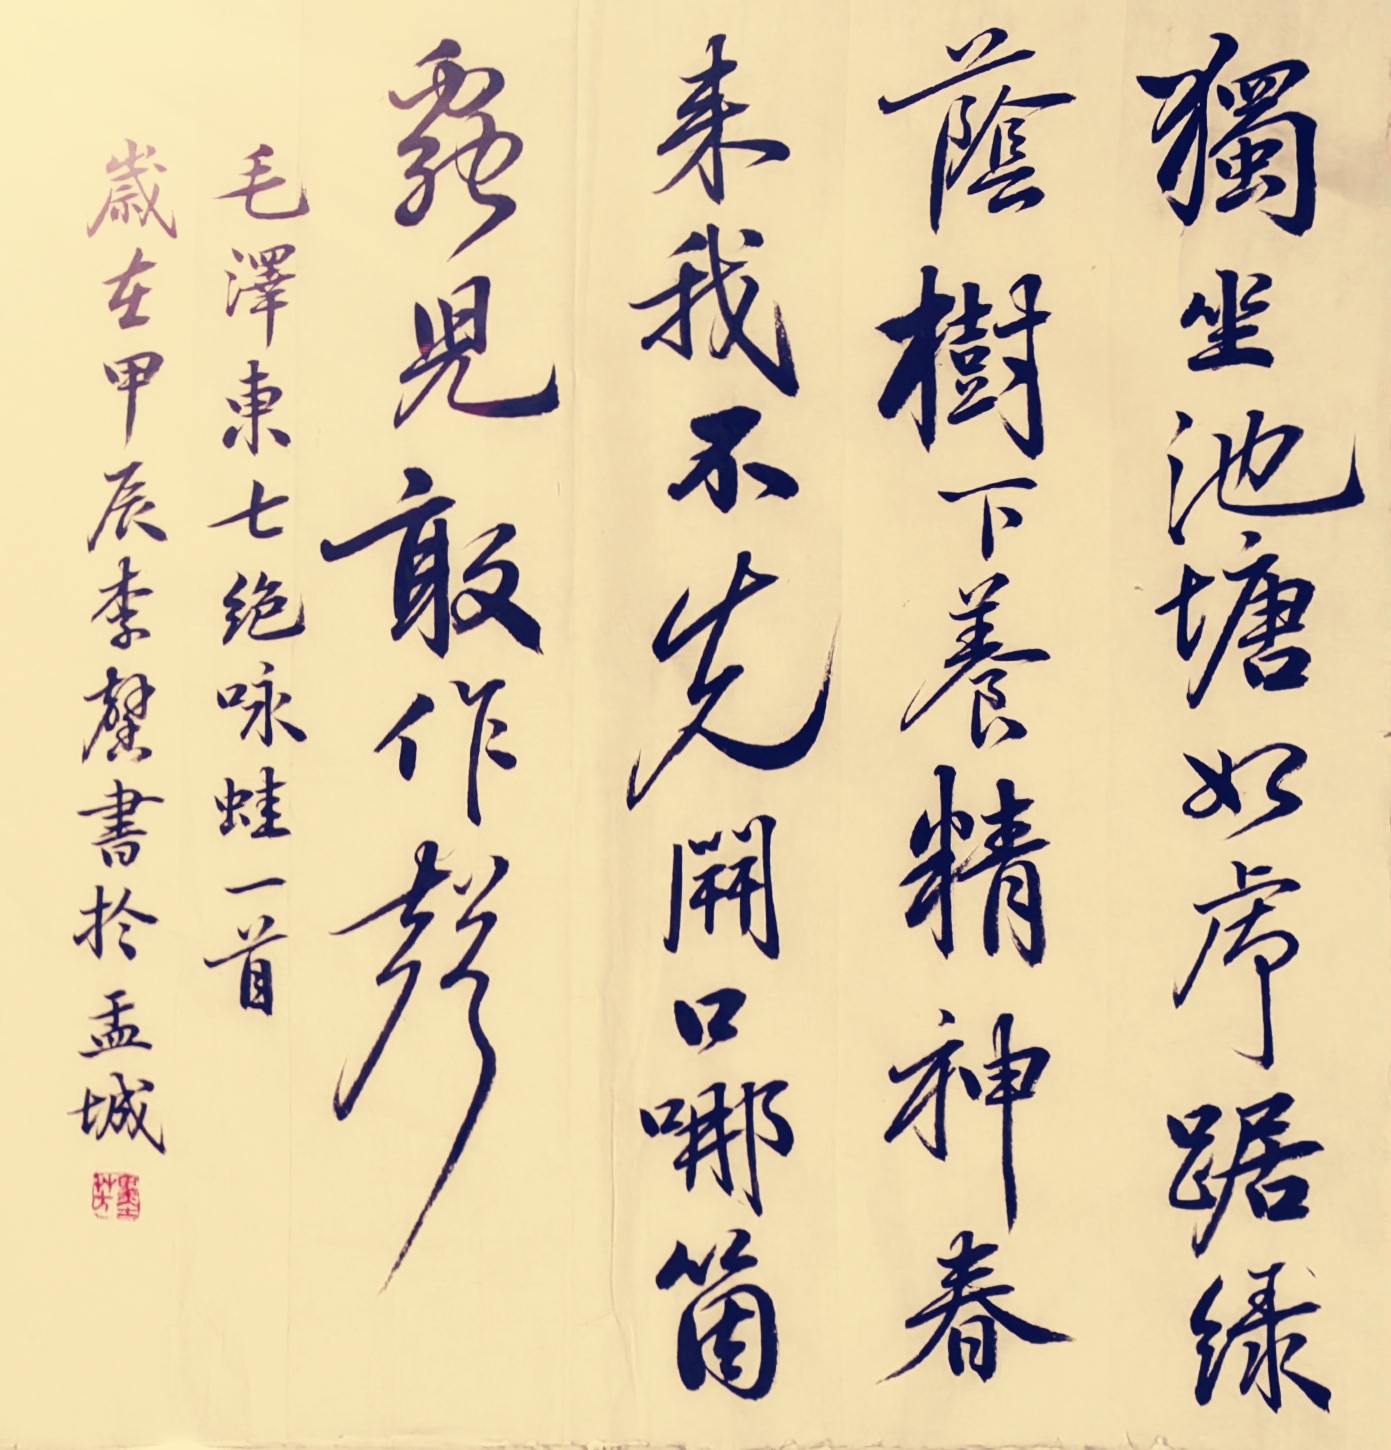 獨坐池塘如虎踞綠
蔭樹下養精神春
来我不先開口哪箇
蟲兒敢作聲
毛澤東七絕咏蛙一首
歲在甲辰李馨書於盂城